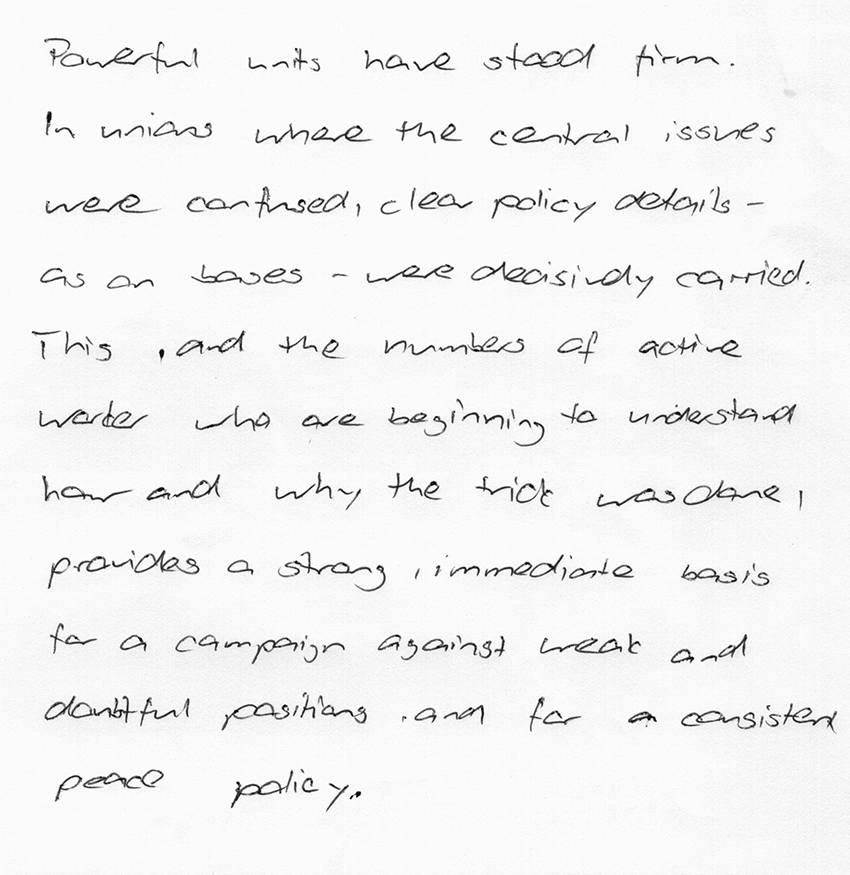 Powerful units have stood firm.
In unions where the central issues
were confused, clear policy details -
as on bases - were decisively carried.
This , and the numbers of active
worker who are beginning to understand
how and why the trick was done,
provides a strong , immediate basis
for a campaign against weak and
doubtful positions . and for a consistent
peace policy.